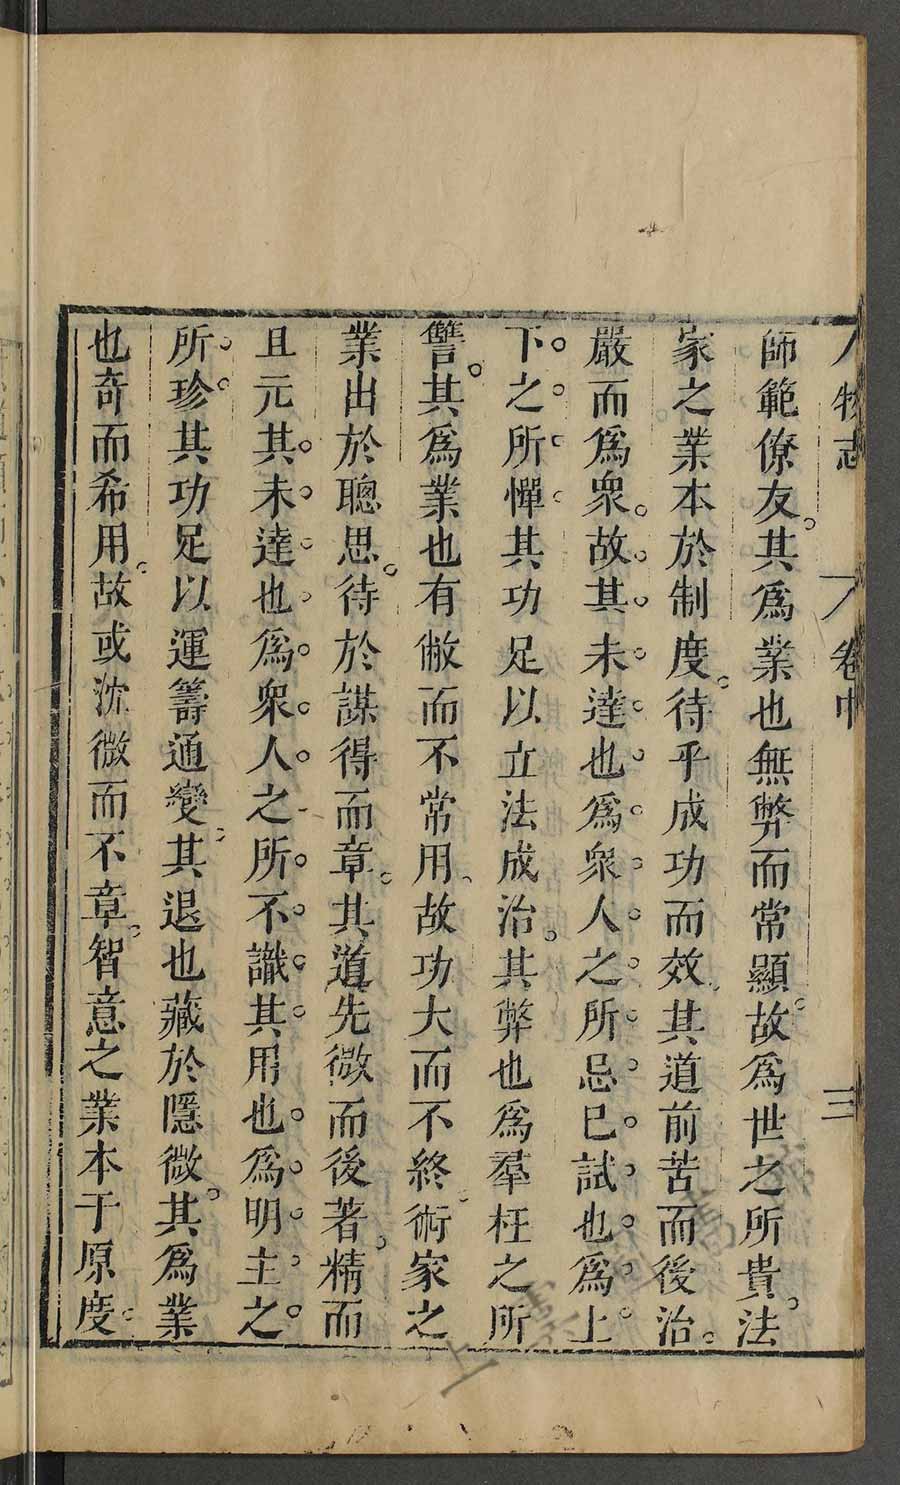 人物志 卷中 三
師範僚友。其爲業也無弊而常顯。故爲世之所貴。法
家之業本於制度。待乎成功而效。其道前苦而後治。
嚴而爲衆。故其未達也。爲衆人之所忌。已試也。爲上
下之所憚。其功足以立法成治。其弊也爲羣枉之所
讐。其爲業也有敝而不常用、故功大而不終。術家之
業出於聰思。待於謀得而章。其道先微而後著。精而
且元。其未達也。爲衆人之所不識。其用也。爲明主之
所珍。其功足以運籌通變。其退也藏於隱微。其爲業
也奇而希用。故或沈微而不章。智意之業本于原度。